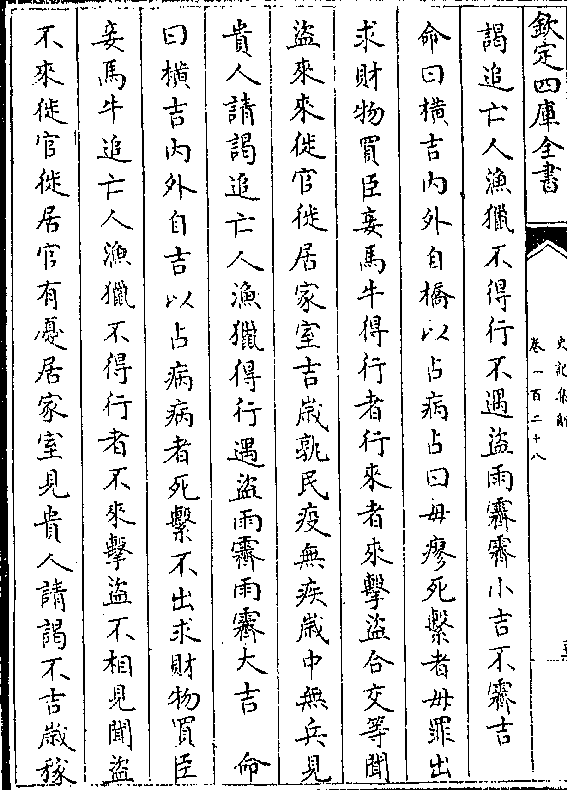 欽定四庫全書
史記集解
卷一百二十八
謁追亡人漁獵不得行不遇盜雨霽霽小吉不霽吉
命曰橫吉內外自橋以占病占曰毋瘳死繫者毋罪出
求財物買臣妾馬牛得行者行來者來擊盜合交等聞
盜來來徙官徙居家室吉嵗孰民疫無疾嵗中無兵見
貴人請謁追亡人漁獵得行遇盜雨霽雨霽大吉 命
曰橫吉內外自吉以占病病者死繫不出求財物買臣
妾馬牛追亡人漁獵不得行者不來擊盜不相見聞盜
不來徙官徙居官有憂居家室見貴人請謁不吉嵗稼